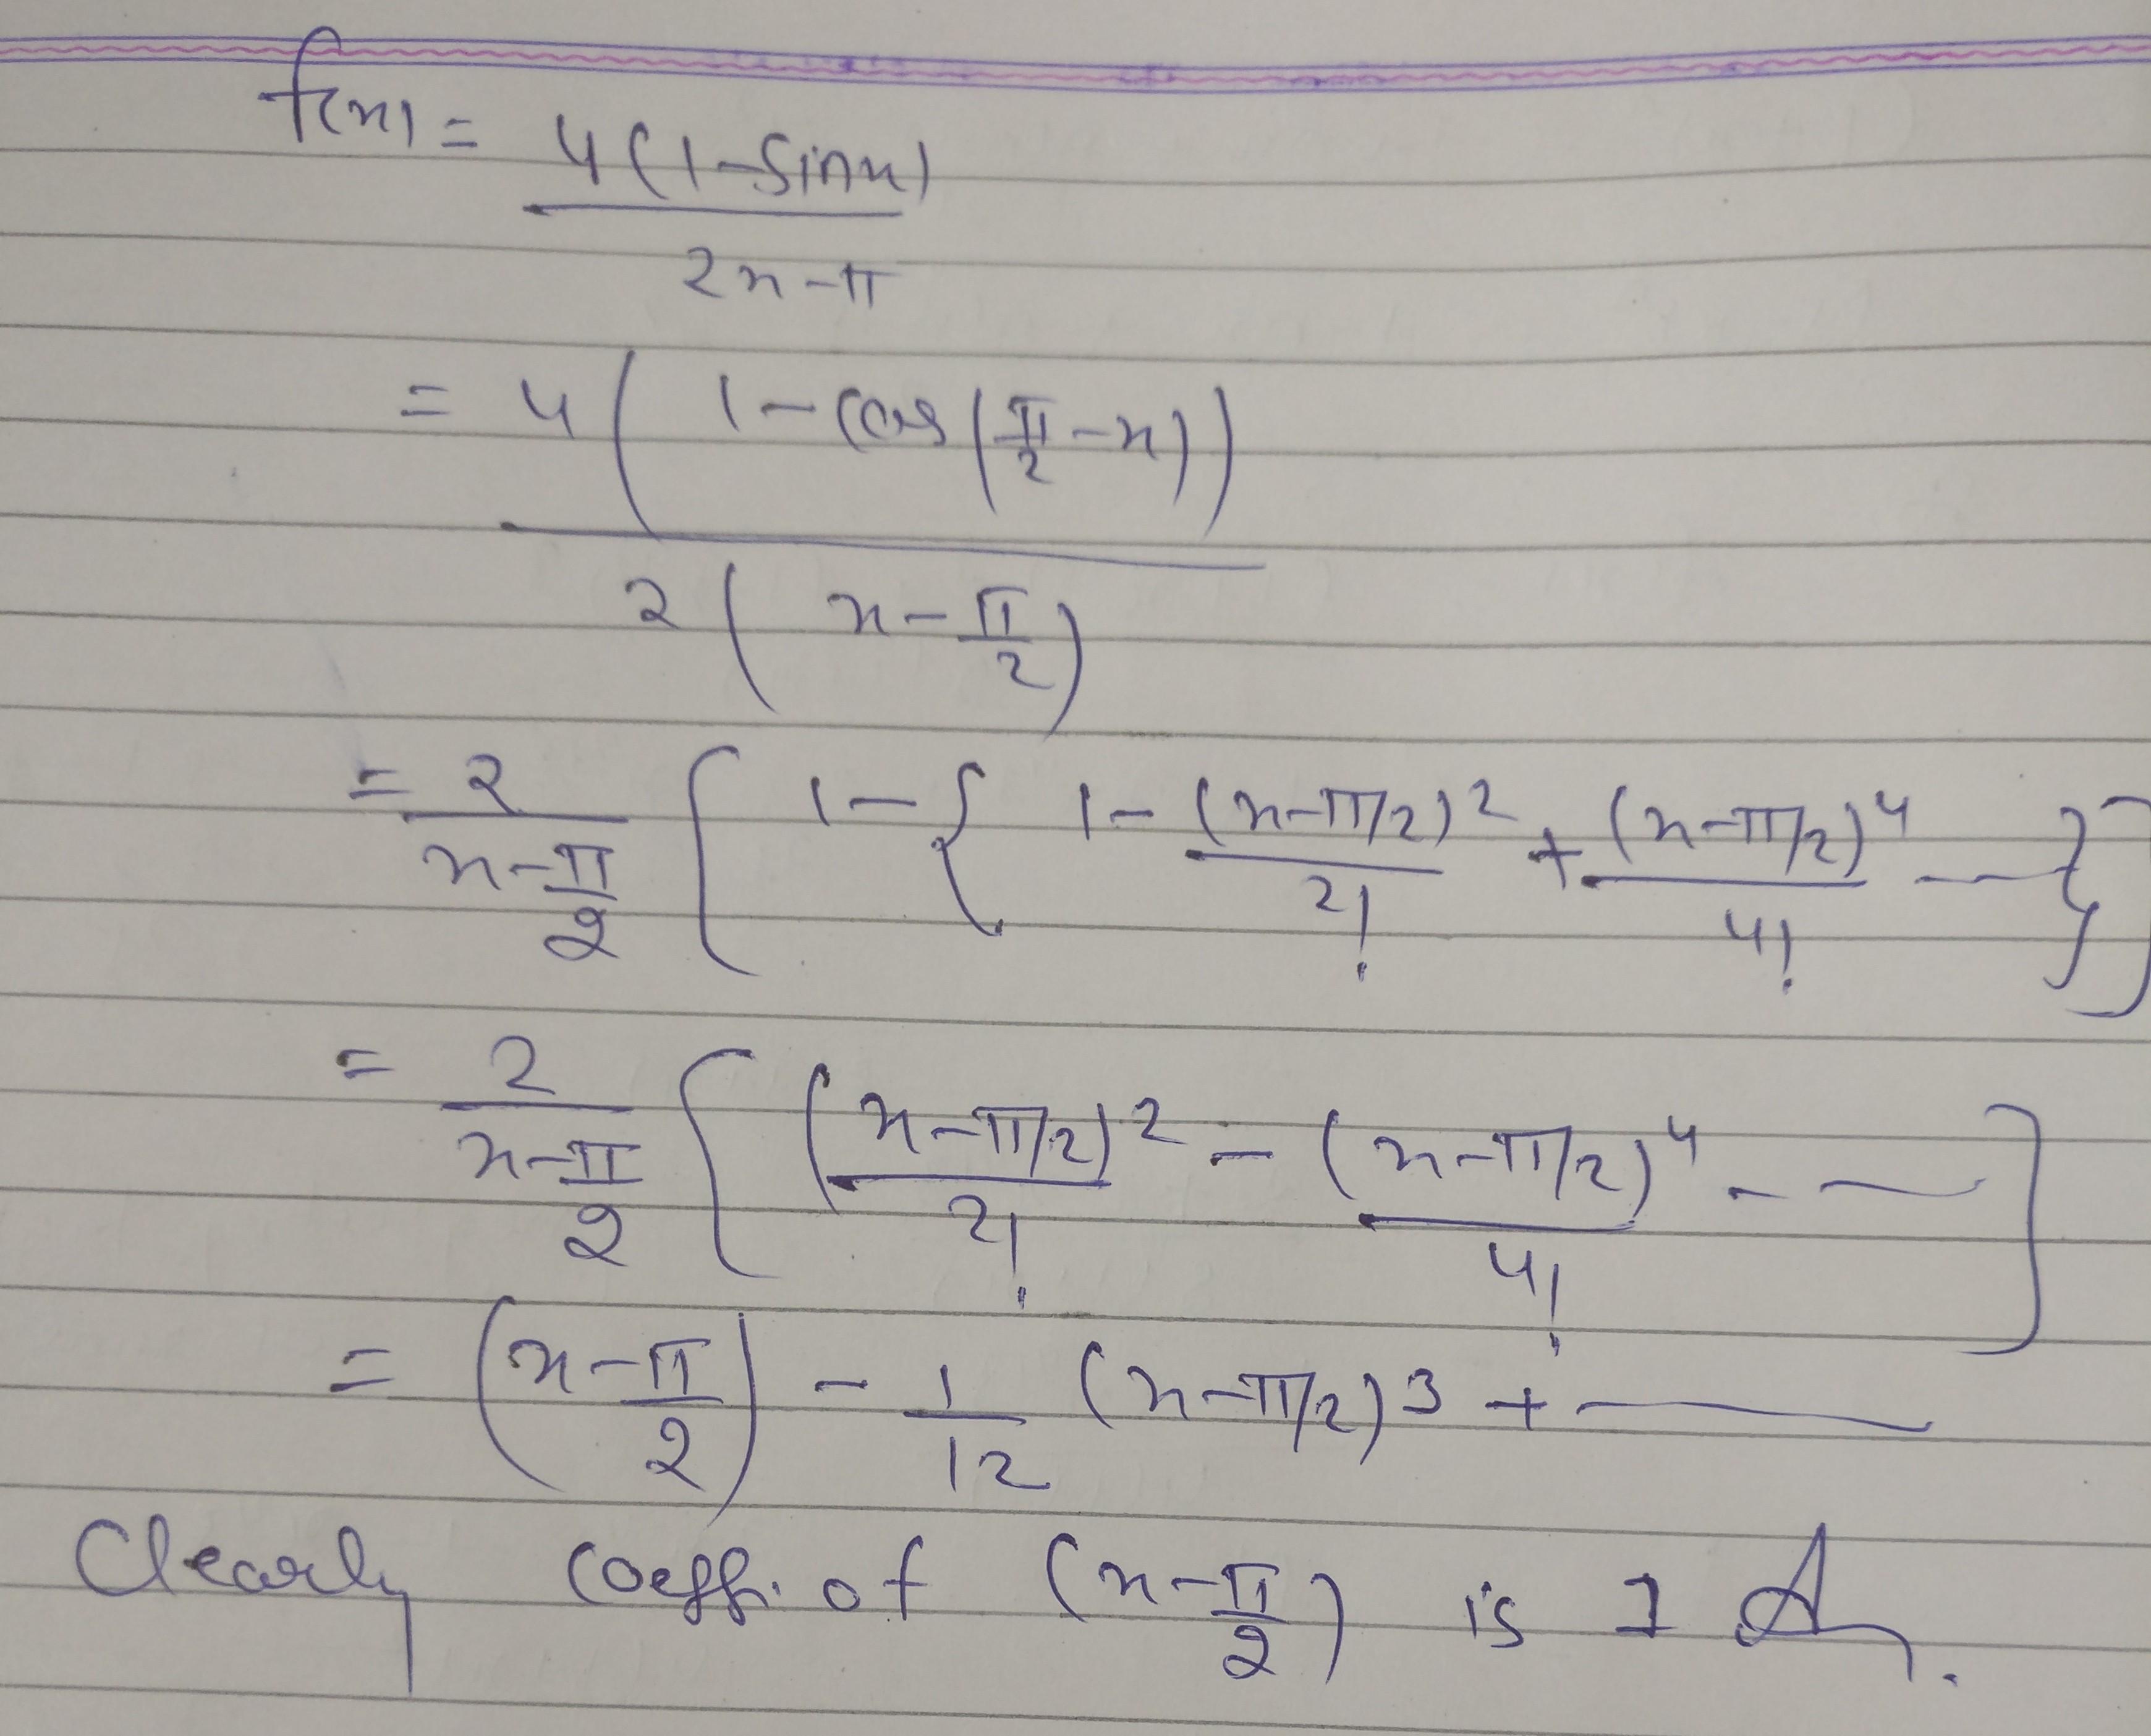 f(x) = 4(1-Sinx) / 2x-π
= 4(1-Cos(π/2-x)) / 2(x-π/2)
= 2/(x-π/2) [1-{1-(x-π/2)²/2! + (x-π/2)⁴/4! ---}]
= 2/(x-π/2) [(x-π/2)²/2! - (x-π/2)⁴/4! - ---]
= (x-π/2) - 1/12 (x-π/2)³ + ---
Clearly coeffi. of (x-π/2) is 1 A.